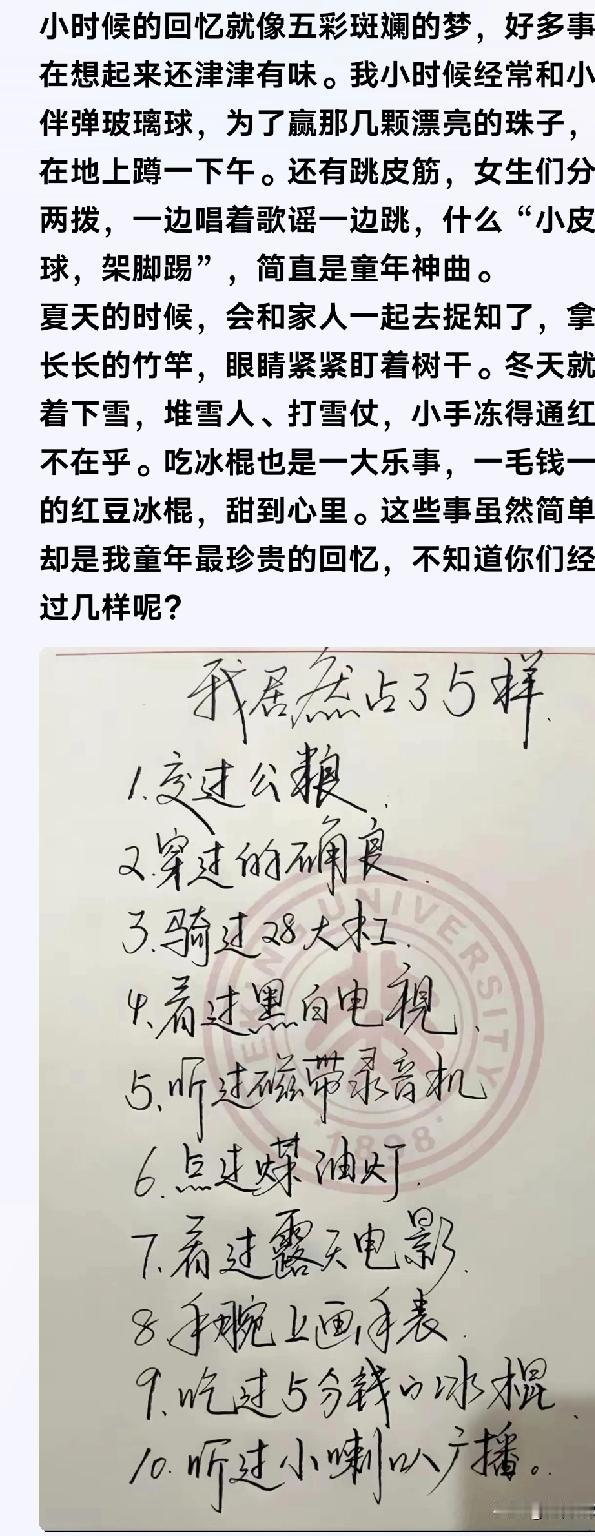 小时候的回忆就像五彩斑斓的梦，好多事
在想起来还津津有味。我小时候经常和小
伴弹玻璃球，为了赢那几颗漂亮的珠子，
在地上蹲一下午。还有跳皮筋，女生们分
两拨，一边唱着歌谣一边跳，什么“小皮
球，架脚踢”，简直是童年神曲。
夏天的时候，会和家人一起去捉知了，拿
长长的竹竿，眼睛紧紧盯着树干。冬天就
着下雪，堆雪人、打雪仗，小手冻得通红
不在乎。吃冰棍也是一大乐事，一毛钱一
的红豆冰棍，甜到心里。这些事虽然简单
却是我童年最珍贵的回忆，不知道你们经
过几样呢？
我居然占了5样.
1.交过公粮.
2.穿过的确良.
3.骑过28大杠.
4.看过黑白电視.
5.听过磁带录音机
6.点过煤油灯.
7.看过露天电影.
8.手腕上画手表.
9.吃过5分钱的冰棍.
10.听过小喇叭广播。
EKING UNIVERSITY
·1898·